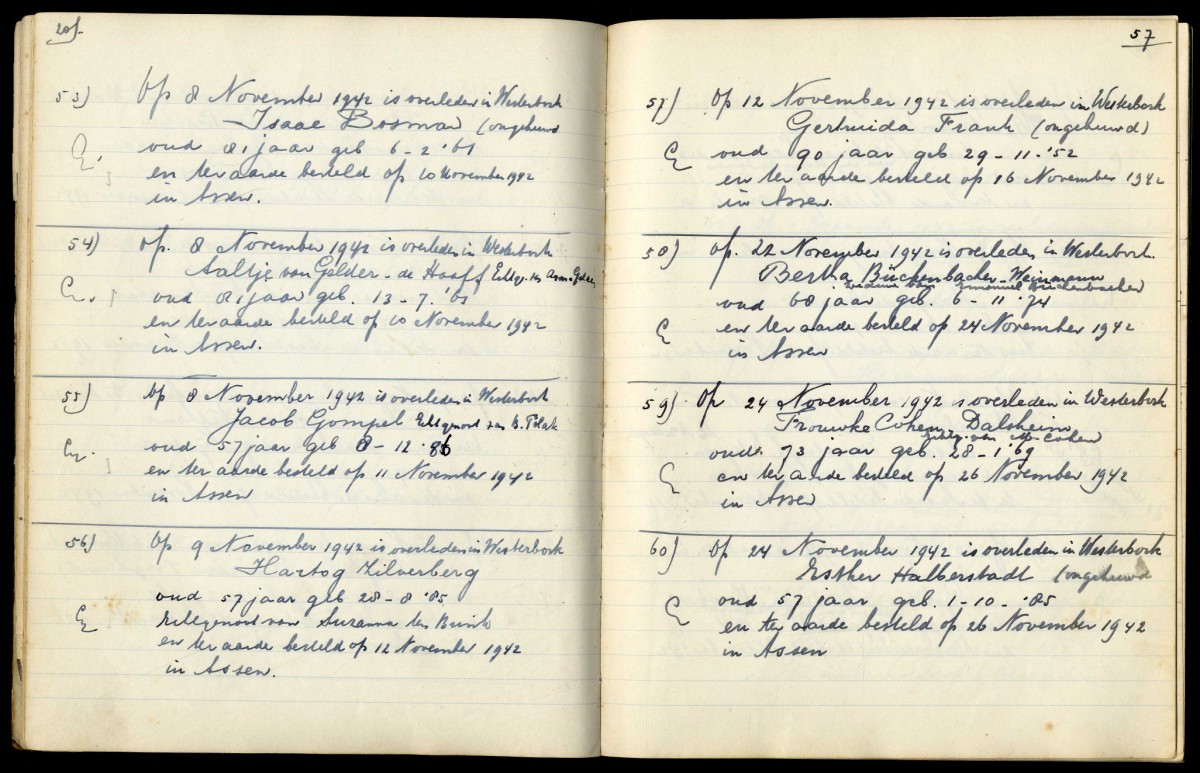 53) Op 8 November 1942 is overleden in Westerbork
Isaac Bosman (ongehuwd
oud 81 jaar geb 6-2 '61
en ter aarde besteld op 10 November 1942
in Assen.
54) Op. 8 November 1942 is overleden in Westerbork
Aaltje van Gelder - de Hooff Echtg. v.
oud 81 jaar geb. 13-7.'61
en ter aarde besteld op 10 November 1942
in Assen.
55) Op 8 November 1942 is overleden in Westerbork
Jacob Gompel Echtgenoot van B. Polak
oud 57 jaar geb 8-12.
en ter aarde besteld op 11 November 1942
in Assen
56) Op 9 November 1942 is overleden in Westerbork
Hartog Zilverberg
oud 57 jaar geb 28-8.'85
echtgenoot van Suzanna
en ter aarde besteld op 12 November 1942
in Assen.
57
57) Op 12 November 1942 is overleden in Westerbork
Gertruida Frank (ongehuwd)
oud 90 jaar geb 29-11.'52
en ter aarde besteld op 16 November 1942
in Assen.
58) Op. 22 November 1942 is overleden in Westerbork.
Bertha Büchenbacher-Weinmann
weduwe van Emanuel Büchenbacher
oud 68 jaar geb. 6-11 '74
en ter aarde besteld op 24 November 1942
in Assen
59) Op 24 November 1942 is overleden in Westerbork
Frouwke Cohen-Dalsheim
echtg. van M. Cohen
oud. 73 jaar geb. 28-1 '69
en ter aarde besteld op 26 November 1942
in Assen
60) Op 24 November 1942 is overleden in Westerbork
Esther Halberstadt (ongehuwd
oud 57 jaar geb. 1-10-'85
en ter aarde besteld op 26 November 1942
in Assen